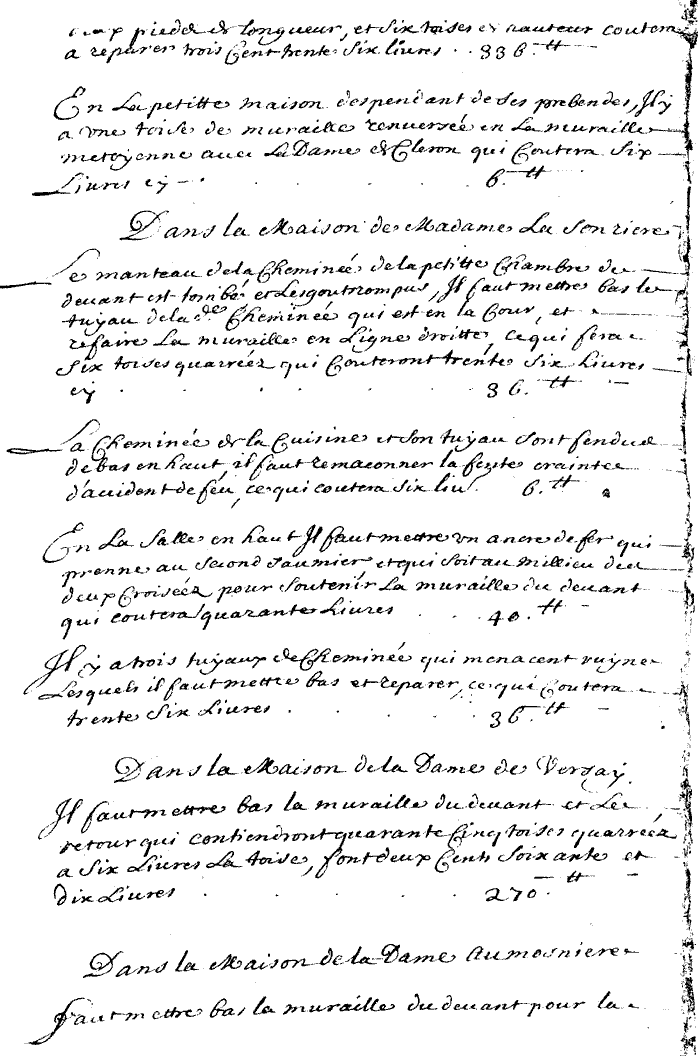 deux pieds de longueur, et six toises de hauteur coutera
a reparer trois Cent trente Six livres . . 336.tt
En La petitte maison despendant de ses prebendes, Il y
a vne toise de muraille renuersée en La muraille
metoyenne auec La Dame de Cleron qui Coutera Six
Liures cy . . . 6.tt
Dans la Maison de Madame La Sonziere
Le manteau dela Cheminée de la petitte Chambre de
deuant est tombé et Lesgout rompus, Il faut mettre bas le
tuyau dela d.e Cheminée qui est en la Cour, et
refaire La muraille en Ligne droitte, ce qui fera
Six toises quarréez qui Couteront trente Six Liures
cy . . . . 36.tt
La Cheminée de la Cuisine et son tuyau sont fendues
de bas en haut, il faut remaconner la fente crainte
d'accident de feu, ce qui coutera Six liu. 6.tt
En La Salle en haut Il faut mettre vn ancre de fer qui
prenne au second saumier et qui soit au millieu des
deux Croiséez pour soutenir La muraille du deuant
qui coutera quarante Liures . . 40.tt
Il y a trois tuyaux de Cheminée qui menacent ruyne
Lesquels il faut mettre bas et reparer, ce qui Coutera
trente Six Liures . . . 36.tt
Dans la Maison de la Dame de Versay.
Il faut mettre bas la muraille du deuant et Le
retour qui contiendront quarante Cinq toises quarréez
a Six Liures La toise, font deux Cents Soixante et
dix Liures . . . 270.tt
Dans la Maison de la Dame Aumosniere
faut mettre bas la muraille du deuant pour la